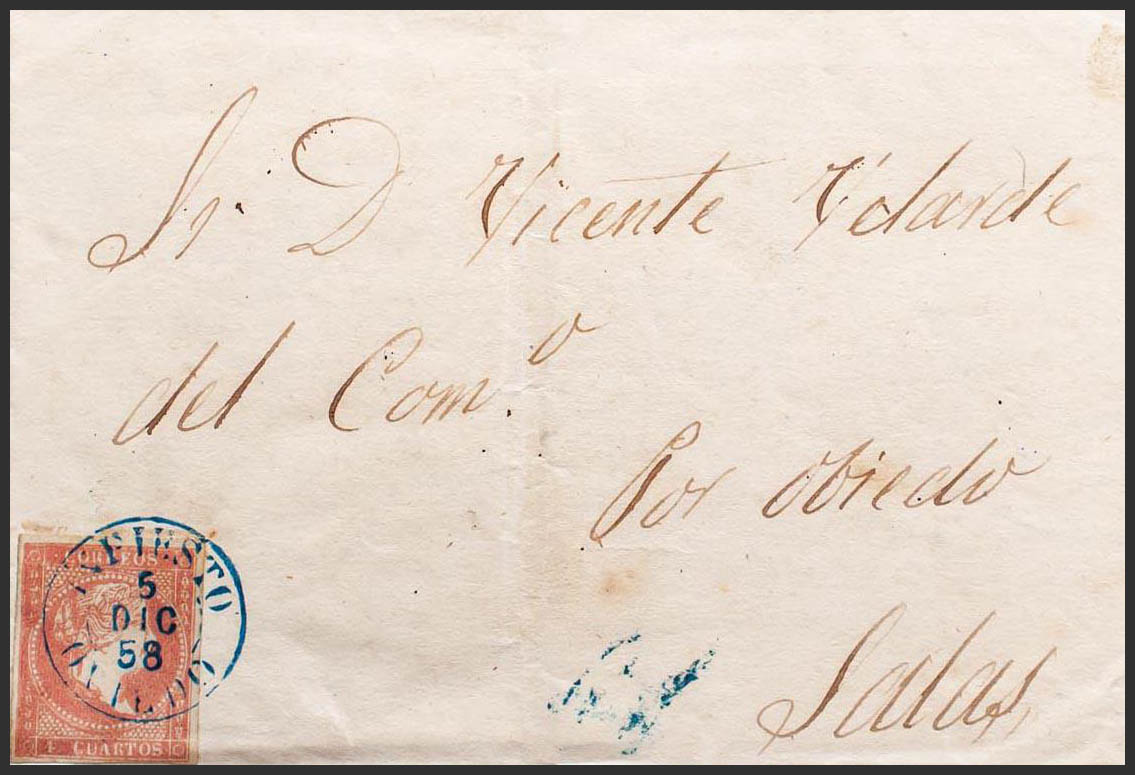 Sr. D Vicente Velarde
del Com.o
Por Obiedo
Salas
CORREOS
INFIESTO
5
DIC
58
OVIEDO
4 CUARTOS